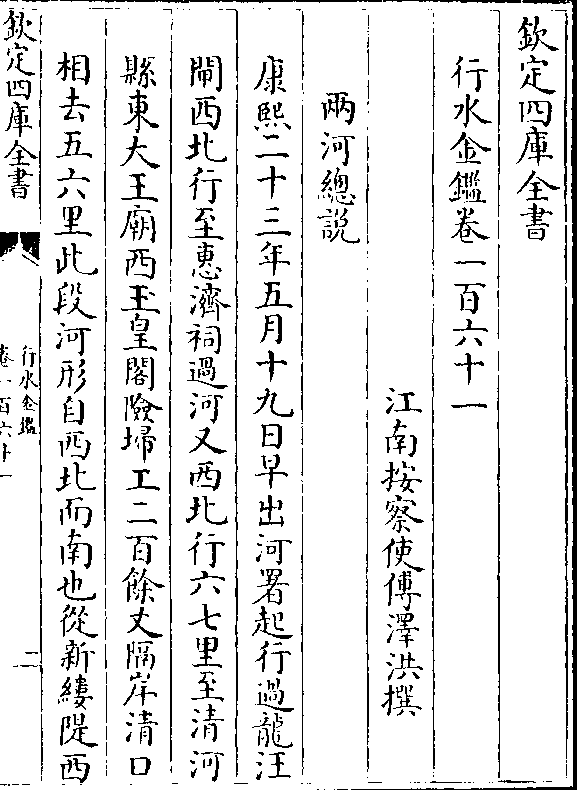 欽定四庫全書
行水金鑑卷一百六十一
江南按察使傅澤洪撰
兩河總說
康熙二十三年五月十九日早出河署起行過龍汪
閘西北行至惠濟祠過河又西北行六七里至清河
縣東大王廟西玉皇閣險埽工二百餘丈隔岸清口
相去五六里此段河形自西北而南也從新縷隄西
欽定四庫全書
行水金鑑
卷一百六十一
二